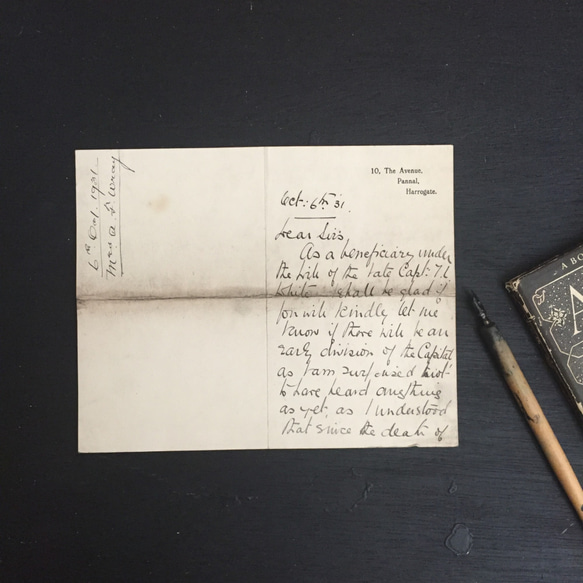 6th Oct. 1931.
Mrs A. Wray
10, The Avenue,
Pannal,
Harrogate.
Oct: 6th 31.
Dear Sirs,
As a beneficiary under
the Will of the late Capt: T.
White I shall be glad if
you will kindly let me
know if there will be an
early division of the Capital
as I am surprised not
to have heard anything
as yet, as I understood
that since the death of
A BO
A